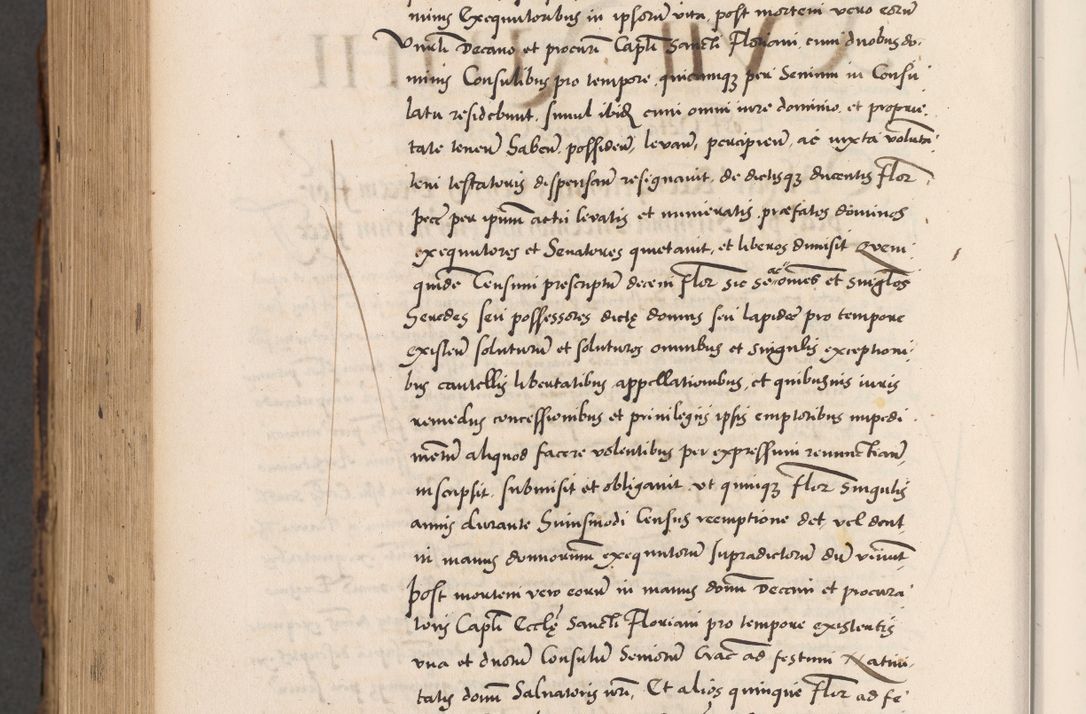 minis Exequutoribus in ipsorum vita, post mortem vero eorum
Vnuli Decano et procuri Capli Sancti Floriani, cum duobus do-
minis Consulibus pro tempore quicunque pen Senium in Consu-
latu residebunt, simul ibid cum omni iure dominio et proprie-
tate tenen haben possiden, levan, percipien, ac iuxta volunta-
tem testatoris dispensan resignauit, de dictisque ducentis Flor
pec per ipsum actu levatis et numeratis, præfatos dominos
exequutores et Senatores quietauit, et liberos dimisit Quem
quidem Censum prescriptum decem Flor sic se ac omnes et singlos
heredes seu possessores dictę domus seu lapidee pro tempore
existen soluturum et soluturos omnibus et singulis exceptioni-
bus cautellis libertatibus appellationibus, et quibusuis iuris
remediis concessionibus et priuilegiis ipsis emptoribus impedi-
mentum aliquod facere volentibus per expressum renunctian,
inscripsit, submisit et obligauit, vt quinque Flor singulis
annis durante huiusmodi Census reemptione det vel dent
in manus dominorum exequutorum supradictorum dum vixerint
post mortem vero eorum in manus domini Decani et procura-
toris Capli Ecclę Sancti Floriani pro tempore existentis
vna et duorum Consulum Seniorum Crac ad festum Natiui-
tatis domini Saluatoris nri, Et alios quinque Flor ad fe-